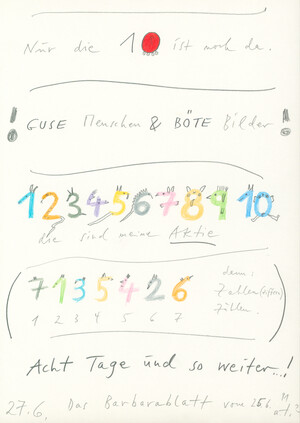 Nur die 10 ist noch da.
! GUSE Menschen & BÖTE Bilder !
1 2 3 4 5 6 7 8 9 10
die sind meine Aktie
7 1 3 5 4 2 6 denn:
Zahlen
1 2 3 4 5 6 7 zählen.
Acht Tage und so weiter...!
27.6. Das Barbarablatt vom 25.6.